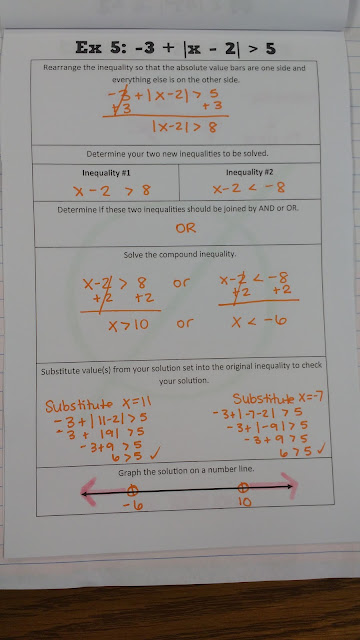 Ex 5: -3 + |x - 2| > 5
Rearrange the inequality so that the absolute value bars are one side and
everything else is on the other side.
-3 + |x-2| > 5
+3 +3
|x-2| > 8
Determine your two new inequalities to be solved.
Inequality #1 Inequality #2
x - 2 > 8 x - 2 < -8
Determine if these two inequalities should be joined by AND or OR.
OR
Solve the compound inequality.
x-2 > 8 or x-2 < -8
+2 +2 +2 +2
x > 10 or x < -6
Substitute value(s) from your solution set into the original inequality to check
your solution.
Substitute x=11 Substitute x=-7
-3+|11-2|>5 -3+|-7-2|>5
-3+|9|>5 -3+|-9|>5
-3+9>5 -3+9>5
6>5 ✓ 6>5 ✓
Graph the solution on a number line.
-6 10